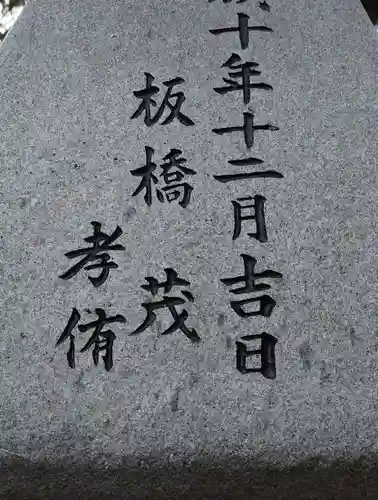 十年十二月吉日
板橋茂
孝侑